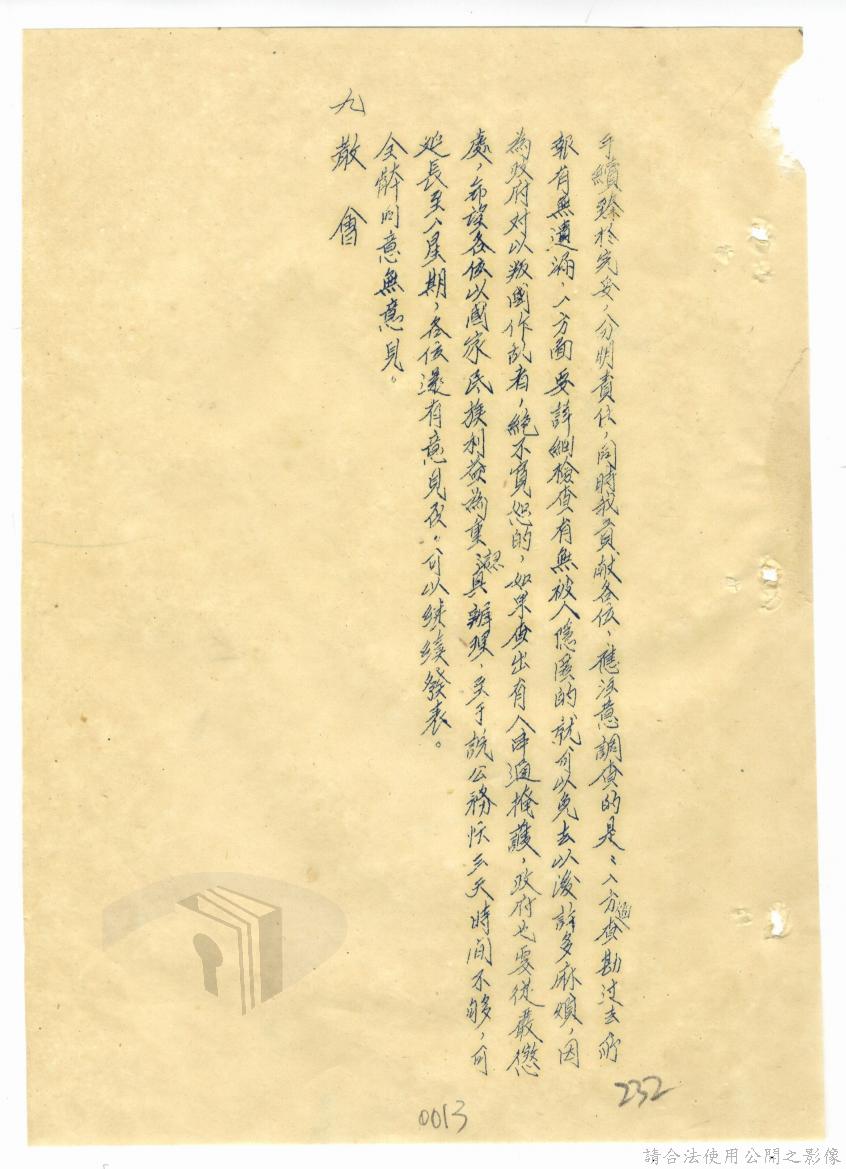 手續臻於完妥，分明責任，同時我貢献各位，應注意調查的是：一方面查勘过去所
報有無遺漏，一方面要詳細檢查有無被人隱匿的就可以免去以後許多麻煩，因
為政府对以叛國作乱者，絕不寬恕的，如果查出有人串通掩護，政府也要從嚴懲
處，希望各位以國家民族利益為重認真辦理，至于說公務忙三天時间不够，可
延長至一星期，各位還有意見否。可以継續發表。
全體同意無意見。
九 散 會
232
0013
請合法使用公開之影像